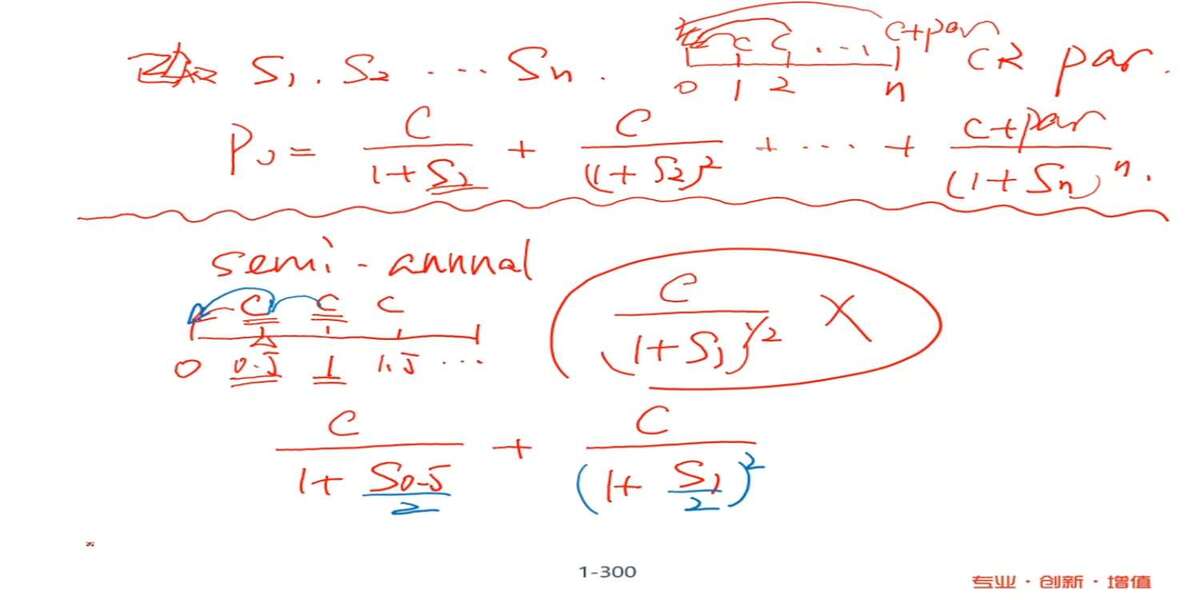 S₁. S₂ ... Sn.
C C ... C+par
0 1 2 n
CR par.
P₀ = C/(1+S₁) + C/(1+S₂)² + ... + (C+par)/(1+Sn)ⁿ.
semi-annual
C C C
0 0.5 1 1.5 ...
C/(1+S₁)^(1/2) X
C/(1+S0.5/2) + C/(1+S₁/2)²
1-300
专业·创新·增值